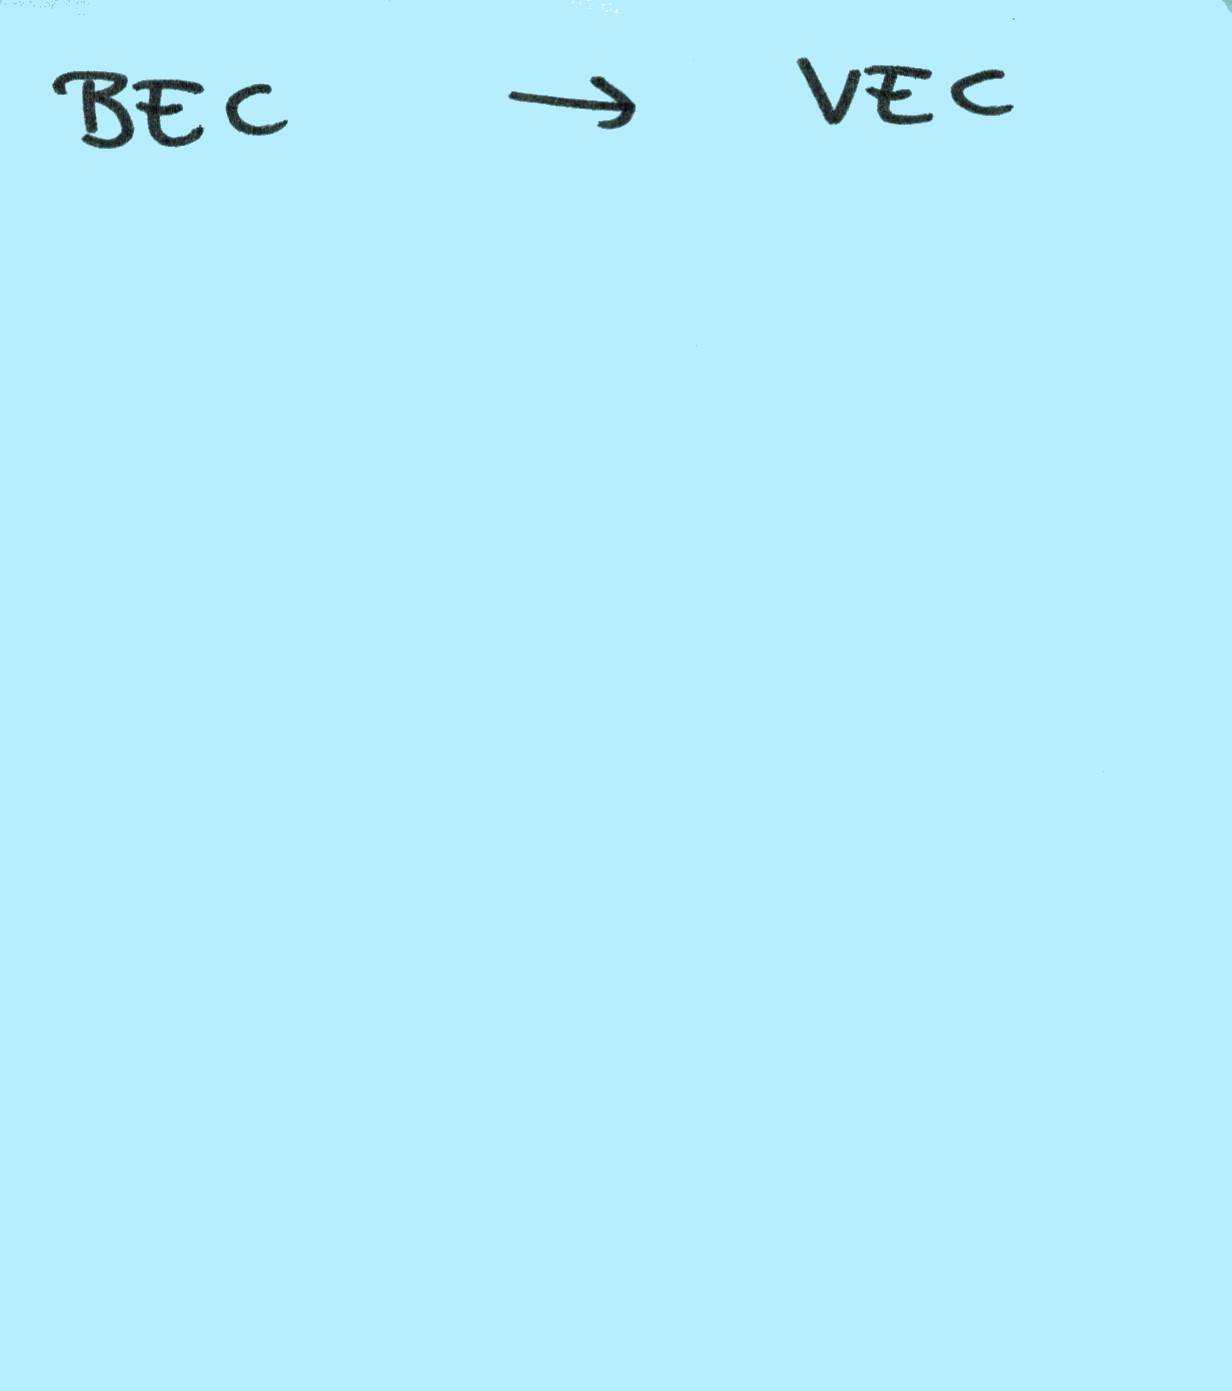 BEC → VEC